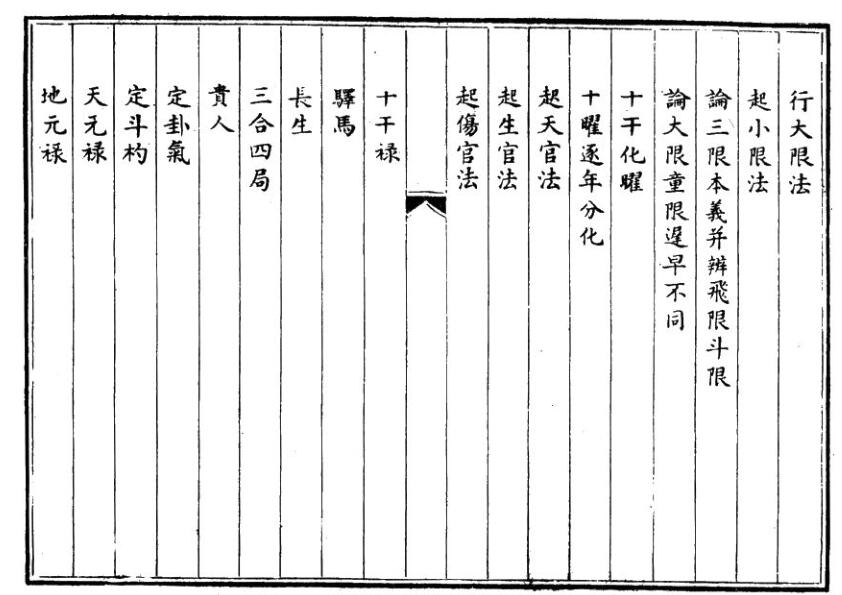 行大限法
起小限法
論三限本義并辨飛限斗限
論大限童限遲早不同
十干化曜
十曜逐年分化
起天官法
起生官法
起傷官法
十干祿
驛馬
長生
三合四局
貴人
定卦氣
定斗杓
天元祿
地元祿